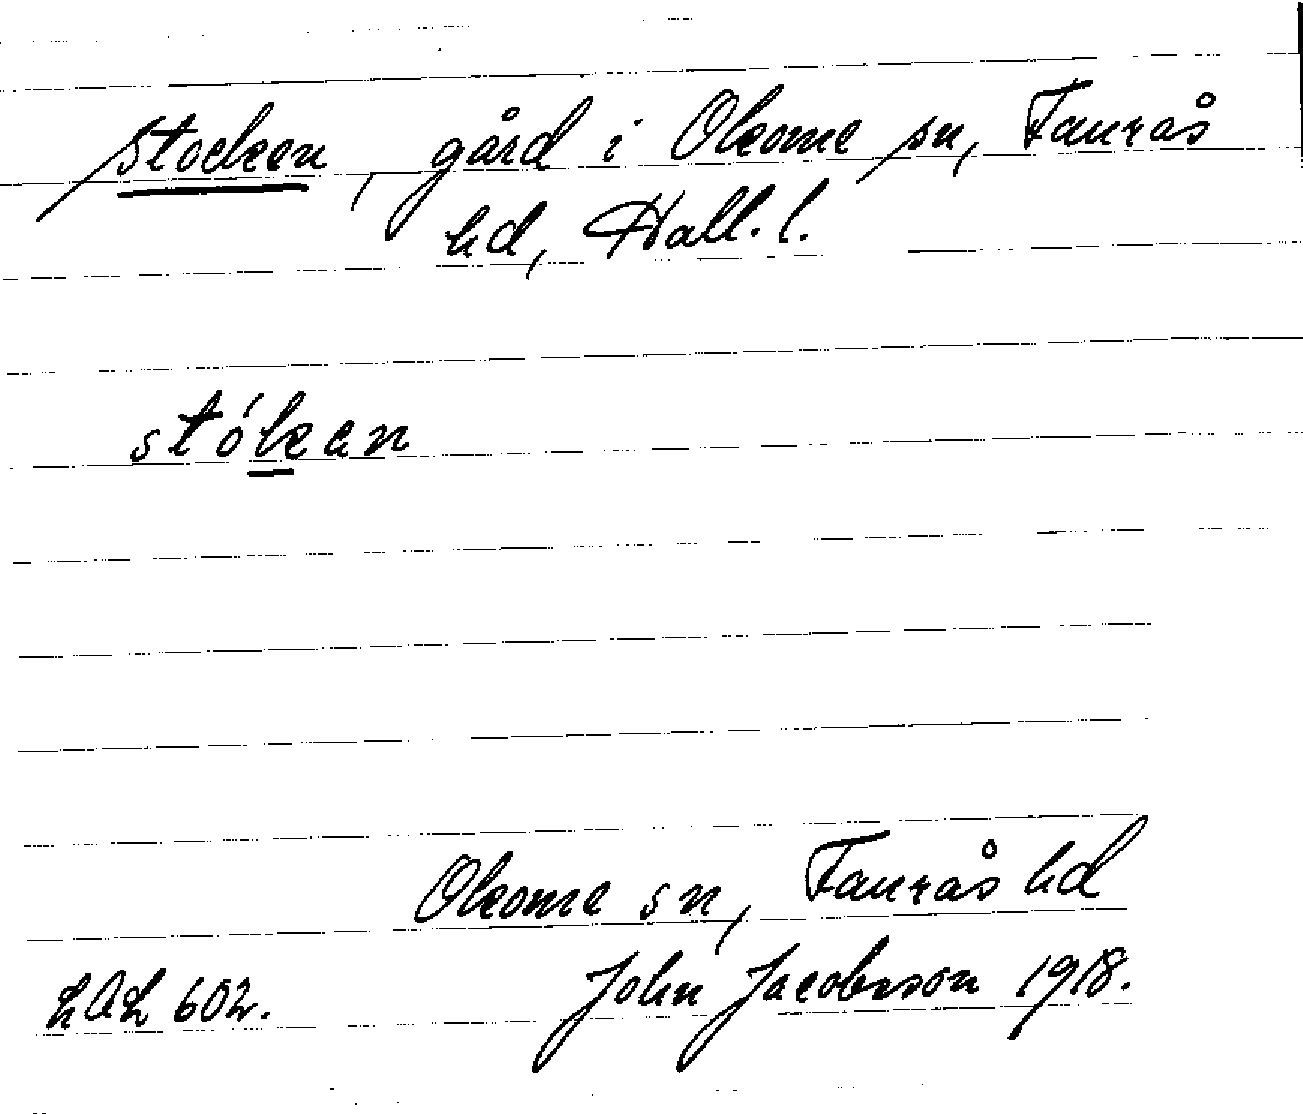 Stocken, gård i Okome sn, Faurås
hd, Hall. l.
stóken
Okome sn, Faurås hd
LAL 602. John Jacobsson 1918.